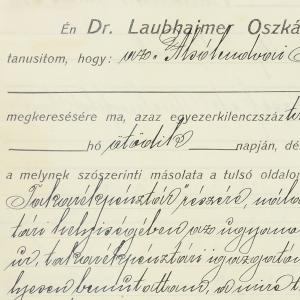 Én Dr. Laubhaimer Oszká
tanusitom, hogy: az Alsólendvai
megkeresésére ma, azaz egyezerkilencszáz
hó ötödik napján, dé
a melynek szószerinti másolata a tulsó oldalo
Takarékpénztár" részére,
tári helyiségében az ugyana
ur, takarékpénztári igazgató
lyesen bemutattam, a mire